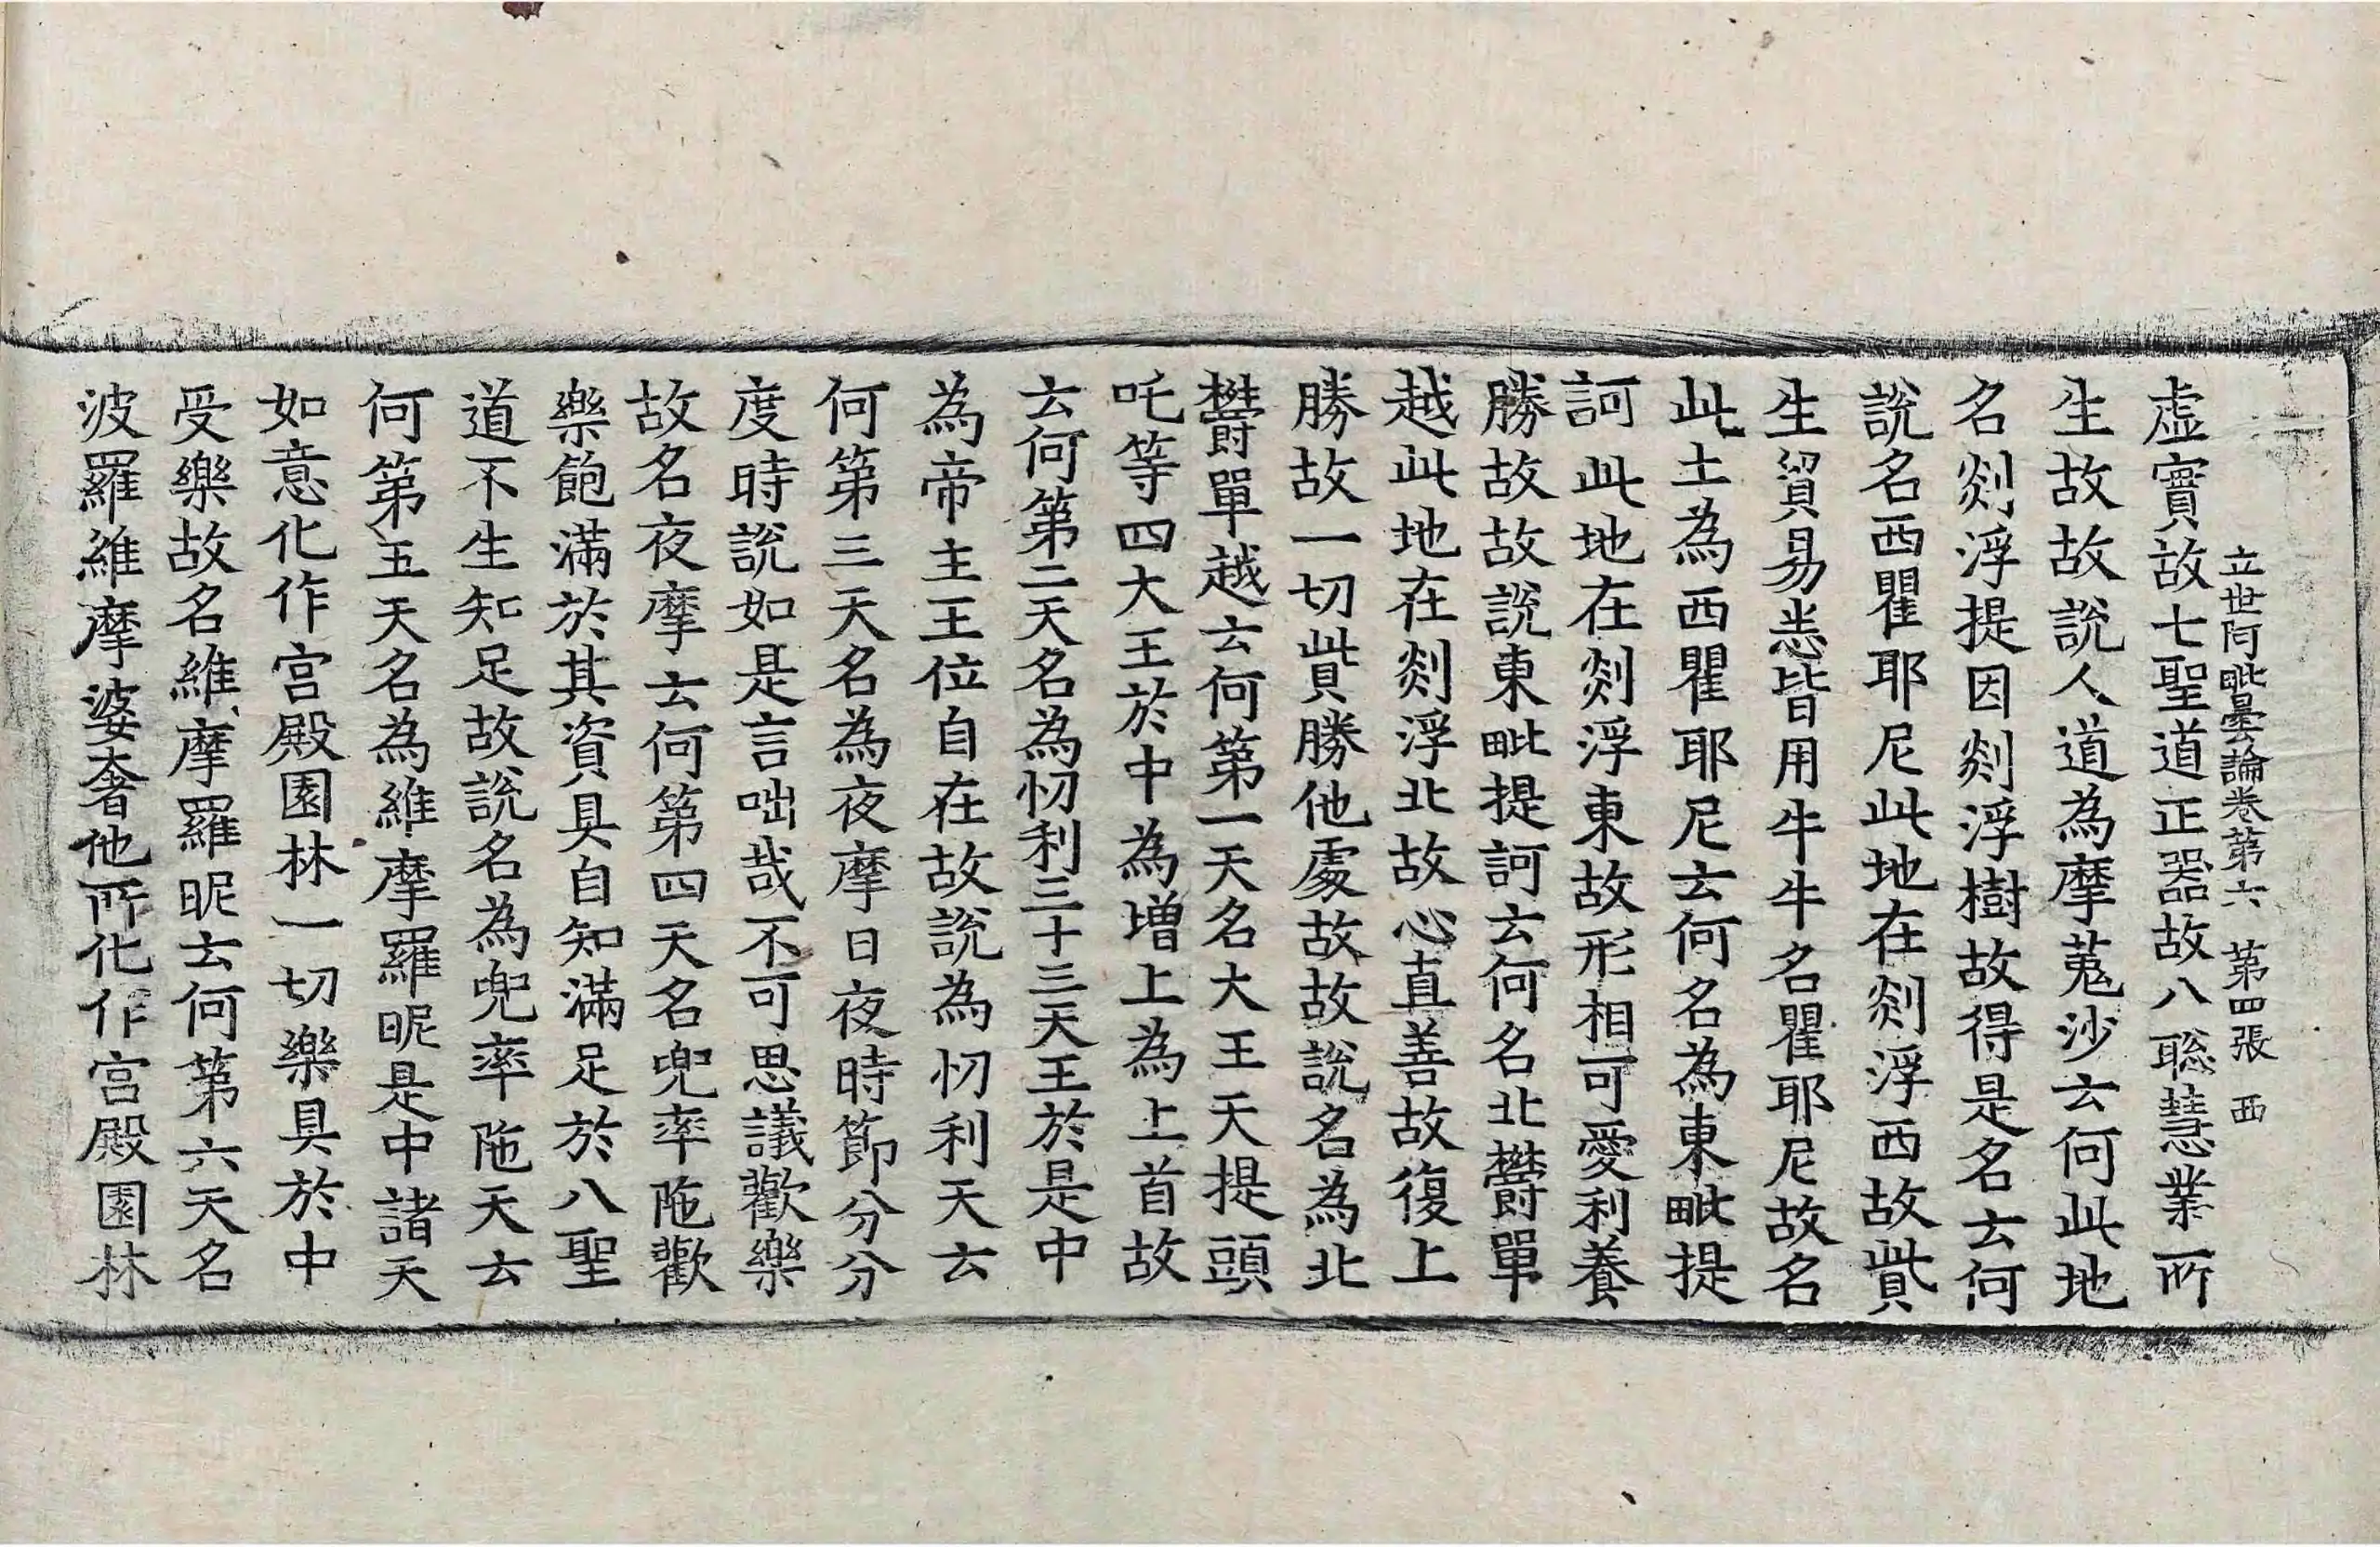 立世阿毗曇論卷第六　第四張　西
虛實故七聖道正器故八聡慧業所
生故故說人道為摩㝹沙云何此地
名剡浮提因剡浮樹故得是名云何
說名西瞿耶尼此地在剡浮西故貲
生貿易悉皆用牛牛名瞿耶尼故名
此土為西瞿耶尼云何名為東毗提
訶此地在剡浮東故形相可愛利養
勝故故說東毗提訶云何名北欝單
越此地在剡浮北故心真善故復上
勝故一切貲勝他處故故說名為北
欝單越云何第一天名大王天提頭
吒等四大王於中為增上為上首故
云何第二天名為忉利三十三天王於是中
為帝主王位自在故說為忉利天云
何第三天名為夜摩日夜時節分分
度時說如是言咄哉不可思議歡樂
故名夜摩云何第四天名兜率陁歡
樂飽滿於其資具自知滿足於八聖
道不生知足故說名為兜率陁天云
何第五天名為維摩羅昵是中諸天
如意化作宮殿園林一切樂具於中
受樂故名維摩羅昵云何第六天名
波羅維摩婆奢他所化作宮殿園林